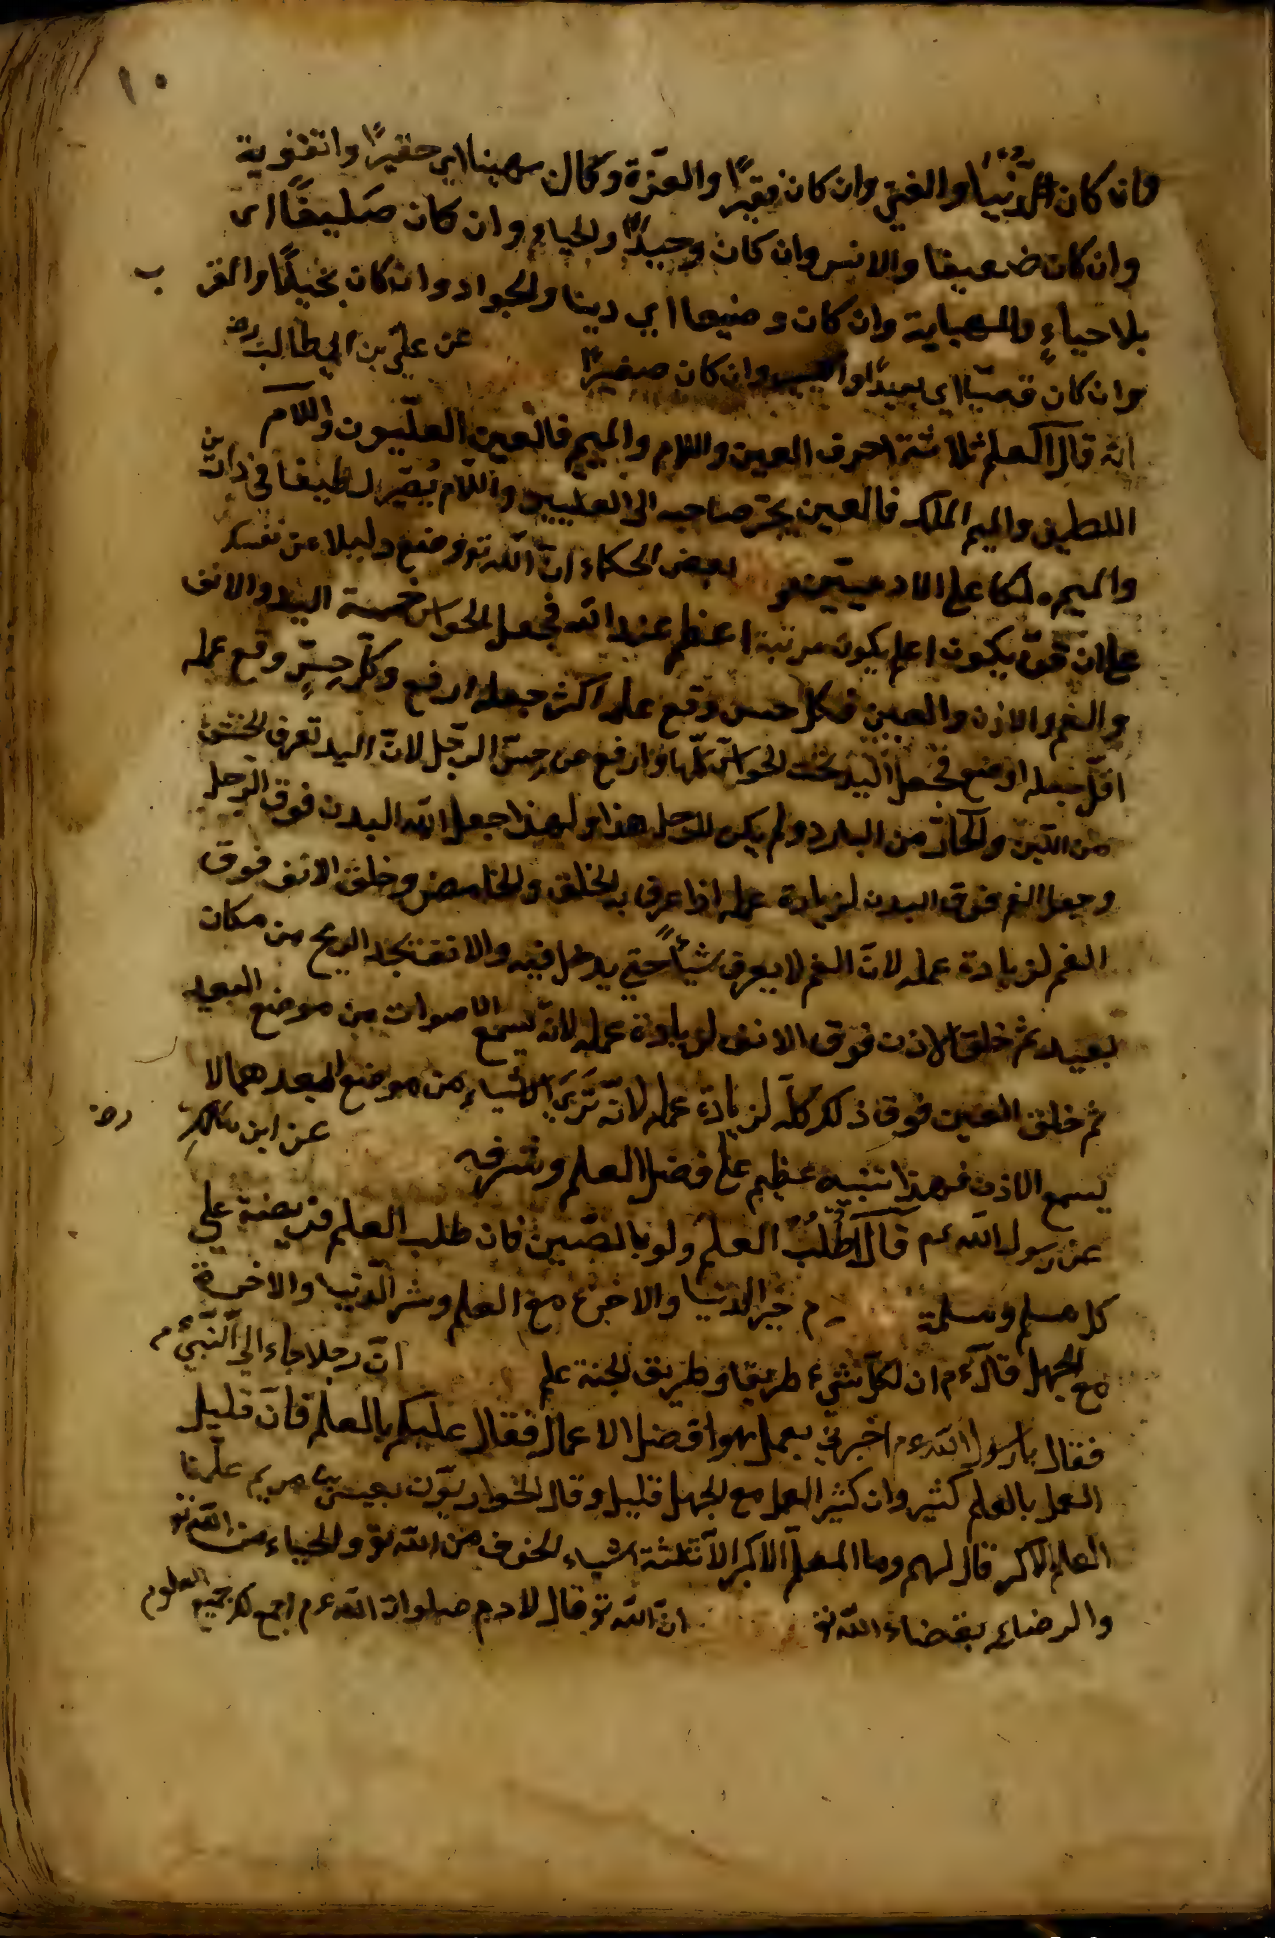 ١٠
وان كان دنيا والغني وان كان فقيرًا والعزة وكان مهينا اي حقيرًا والقوية
وان كان ضعيفا والانس وان كان وحيدًا والحياء وان كان صليفًا اى
بلا حياءٍ والمهابة وان كان وضيعا اي دينا والجواد وان كان بخيلًا والقر
ب
وان كان قصيّا اى بعيدًا وان كان صغيرًا عن علي بن ابي طالب رض
انه قال العلم ثلاثة احرف العين واللام والميم فالعين العلّيون واللام
اللطيف والميم الملك فالعين يجرّ صاحبه الى العليين واللّام يصيّر لطيفا في ذات
والميم ملكا على الادميين بعض الحكماء انّ الله تو وضع دليلا عن نفسك
على ان من يكون اعلم يكون مرتبة اعظم عند الله فجعل الحواس خمسة اليد والانف
والفم والاذن والعين فكل حس وقع علمه اكثر جعله ارفع وكلّ حسٍّ وقع علمه
اقلّ جعله اوضع فجعل اليد تحت الحواس كلّها وارفع من حسّ الرجل لانّ اليد تعرف الخشن
من اللّين والحارّ من البارد ولم يكن للرجل هذا ولهذا جعل الله اليدين فوق الرجل
وجعل الفم فوق اليدين لزيادة علمه اذا عرف به الخلق والحامض وخلق الانف فوق
الفم لزيادة علمه لانّ الفم لا يعرف شيأً حتى يدخل فيه والانف تجد الريح من مكان
بعيد ثم خلق الاذن فوق الانف لزيادة علمه لانّه يسمع الاصوات من موضع البعيد
ثم خلق العين فوق ذلك كلّه لزيادة علمه لانّه تَرَى الاشياء من موضع البعد مما لا
يسمع الاذن فهذا تنبيه عظيم على فضل العلم وشرفه عن ابن رض
عن رسول الله عم قال اُطْلُبُ العلم ولو بالصّين فان طلب العلم فريضة علي
كل مسلم ومسلمة م خير الدنيا والاخرة مع العلم وشر الدنيا والاخرة
مع الجهل قال عم ان لكل شيء طريقا وطريق الجنة علم انّ رجلا جاء الى النّبي م
فقال يا رسول الله عم اخبرني بعمل هو افضل الاعمال فقال عليكم بالعلم فانّ قليل
العمل بالعلم كثير وان كثير العمل مع الجهل قليل وقال الحواريّون بعيسى بن مريم علّمنا
العلم الاكبر قال لهم وما العلم الاكبر الا ثلثة اشياء الخوف من الله تو والحياء من الله تو
والرضاء بقضاء الله تو ان الله تو قال لادم صلوات الله عم اجمع لك جميع العلوم